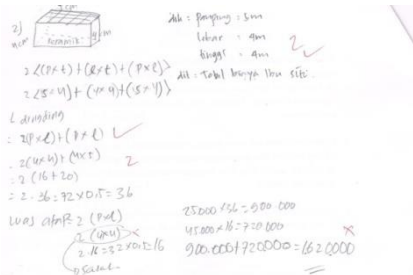 2)
4cm
keramik
dik : panjang : 5m
lebar : 4m
tinggi : 4m
2
2{(p×t)+(l×t)+(p×l)}
2{(5×4)+(4×4)+(5×4)}
dit : Total biaya Ibu siti
L dinding
= 2(p×l)+(p×l)
= 2(4×4)+(4×5)
2
= 2(16+20)
= 2.36=72×0,5=36
Luas atap = 2(p×l)
2(4×4)
2.16=32×0,5=16
salah
25.000×36=900.000
45.000×16=720.000
900.000+720.000=1.620.000